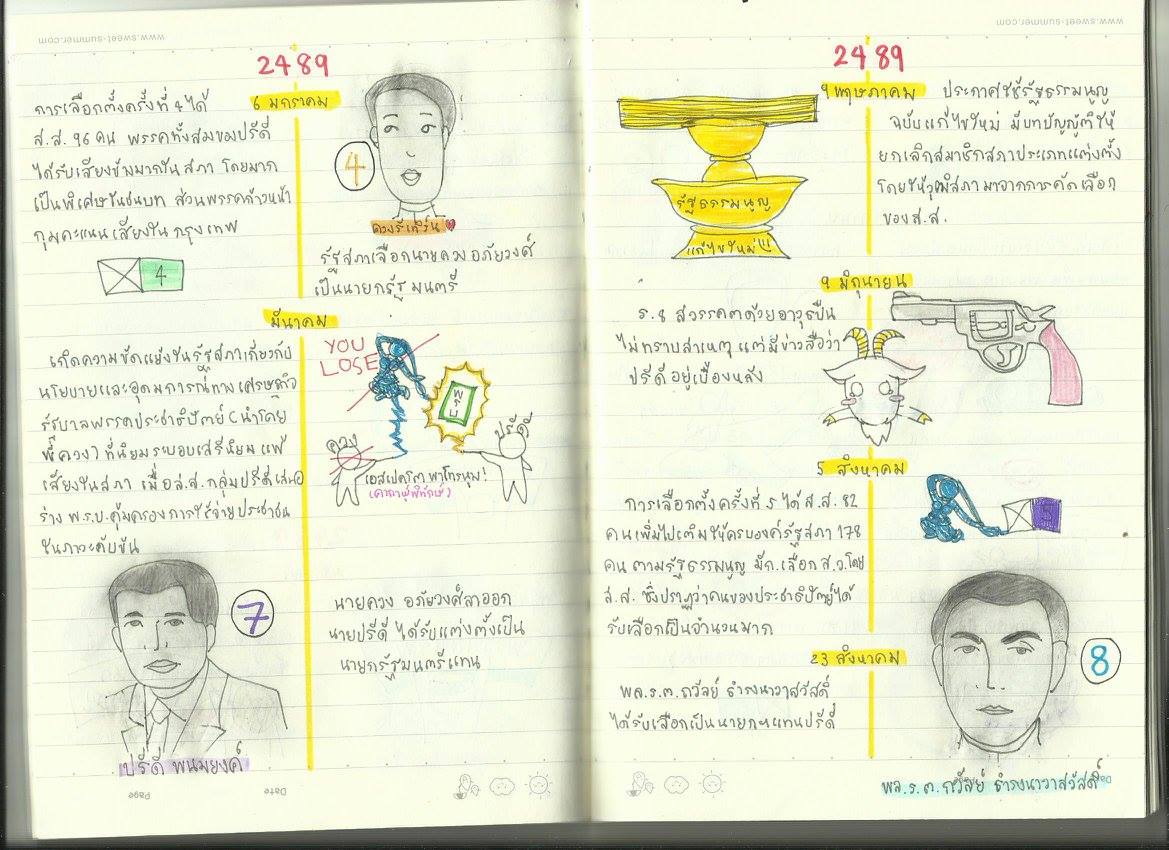 www.sweet-summer.com
2489
6 มกราคม
การเลือกตั้งครั้งที่ 4 ได้
ส.ส. 96 คน พรรคทั้งสมของปรีดี
ได้รับเสียงข้างมากในสภา โดยมาก
เป็นพิเศษในชนบท ส่วนพรรคก้าวหน้า
กุมคะแนนเสียงใน กรุงเทพ
4
4
ควงรีเทิร์น
รัฐสภาเลือกนายควง อภัยวงศ์
เป็นนายกรัฐมนตรี
มีนาคม
เกิดความขัดแย้งในรัฐสภาเกี่ยวกับ
นโยบายและอุดมการณ์ทางเศรษฐกิจ
รัฐบาลพรรคประชาธิปัตย์ (นำโดย
พี่ควง) ที่นิยมระบอบเสรีนิยม แพ้
เสียงในสภา เมื่อส.ส.กลุ่มปรีดีเสนอ
ร่าง พ.ร.บ.คุ้มครองการใช้จ่ายประชาชน
ในภาวะคับขัน
YOU
LOSE
พรบ
ควง
ปรีดี
เอสเปคโต พาโทรนุม!
(คาถาผู้พิทักษ์)
7
นายควง อภัยวงศ์ลาออก
นายปรีดี ได้รับแต่งตั้งเป็น
นายกรัฐมนตรีแทน
ปรีดี พนมยงค์
Date
Page
www.sweet-summer.com
2489
9 พฤษภาคม
ประกาศใช้รัฐธรรมนูญ
ฉบับแก้ไขใหม่ มีบทบัญญัติให้
ยกเลิกสมาชิกสภาประเภทแต่งตั้ง
โดยให้วุฒิสภามาจากการคัดเลือก
ของ ส.ส.
รัฐธรรมนูญ
แก้ไขใหม่!!!
9 มิถุนายน
ร.8 สวรรคตด้วยอาวุธปืน
ไม่ทราบสาเหตุ แต่มีข่าวลือว่า
ปรีดีอยู่เบื้องหลัง
5 สิงหาคม
การเลือกตั้งครั้งที่ 5 ได้ ส.ส. 82
คนเพิ่มไปเติมให้ครบองค์รัฐสภา 178
คน ตามรัฐธรรมนูญ มีก.เลือก ส.ว.โดย
ส.ส. ซึ่งปรากฏว่าคนของประชาธิปัตย์ได้
รับเลือกเป็นจำนวนมาก
5
23 สิงหาคม
พล.ร.ต.ถวัลย์ ธำรงนาวาสวัสดิ์
ได้รับเลือกเป็นนายกฯแทนปรีดี
8
พล.ร.ต.ถวัลย์ ธำรงนาวาสวัสดิ์